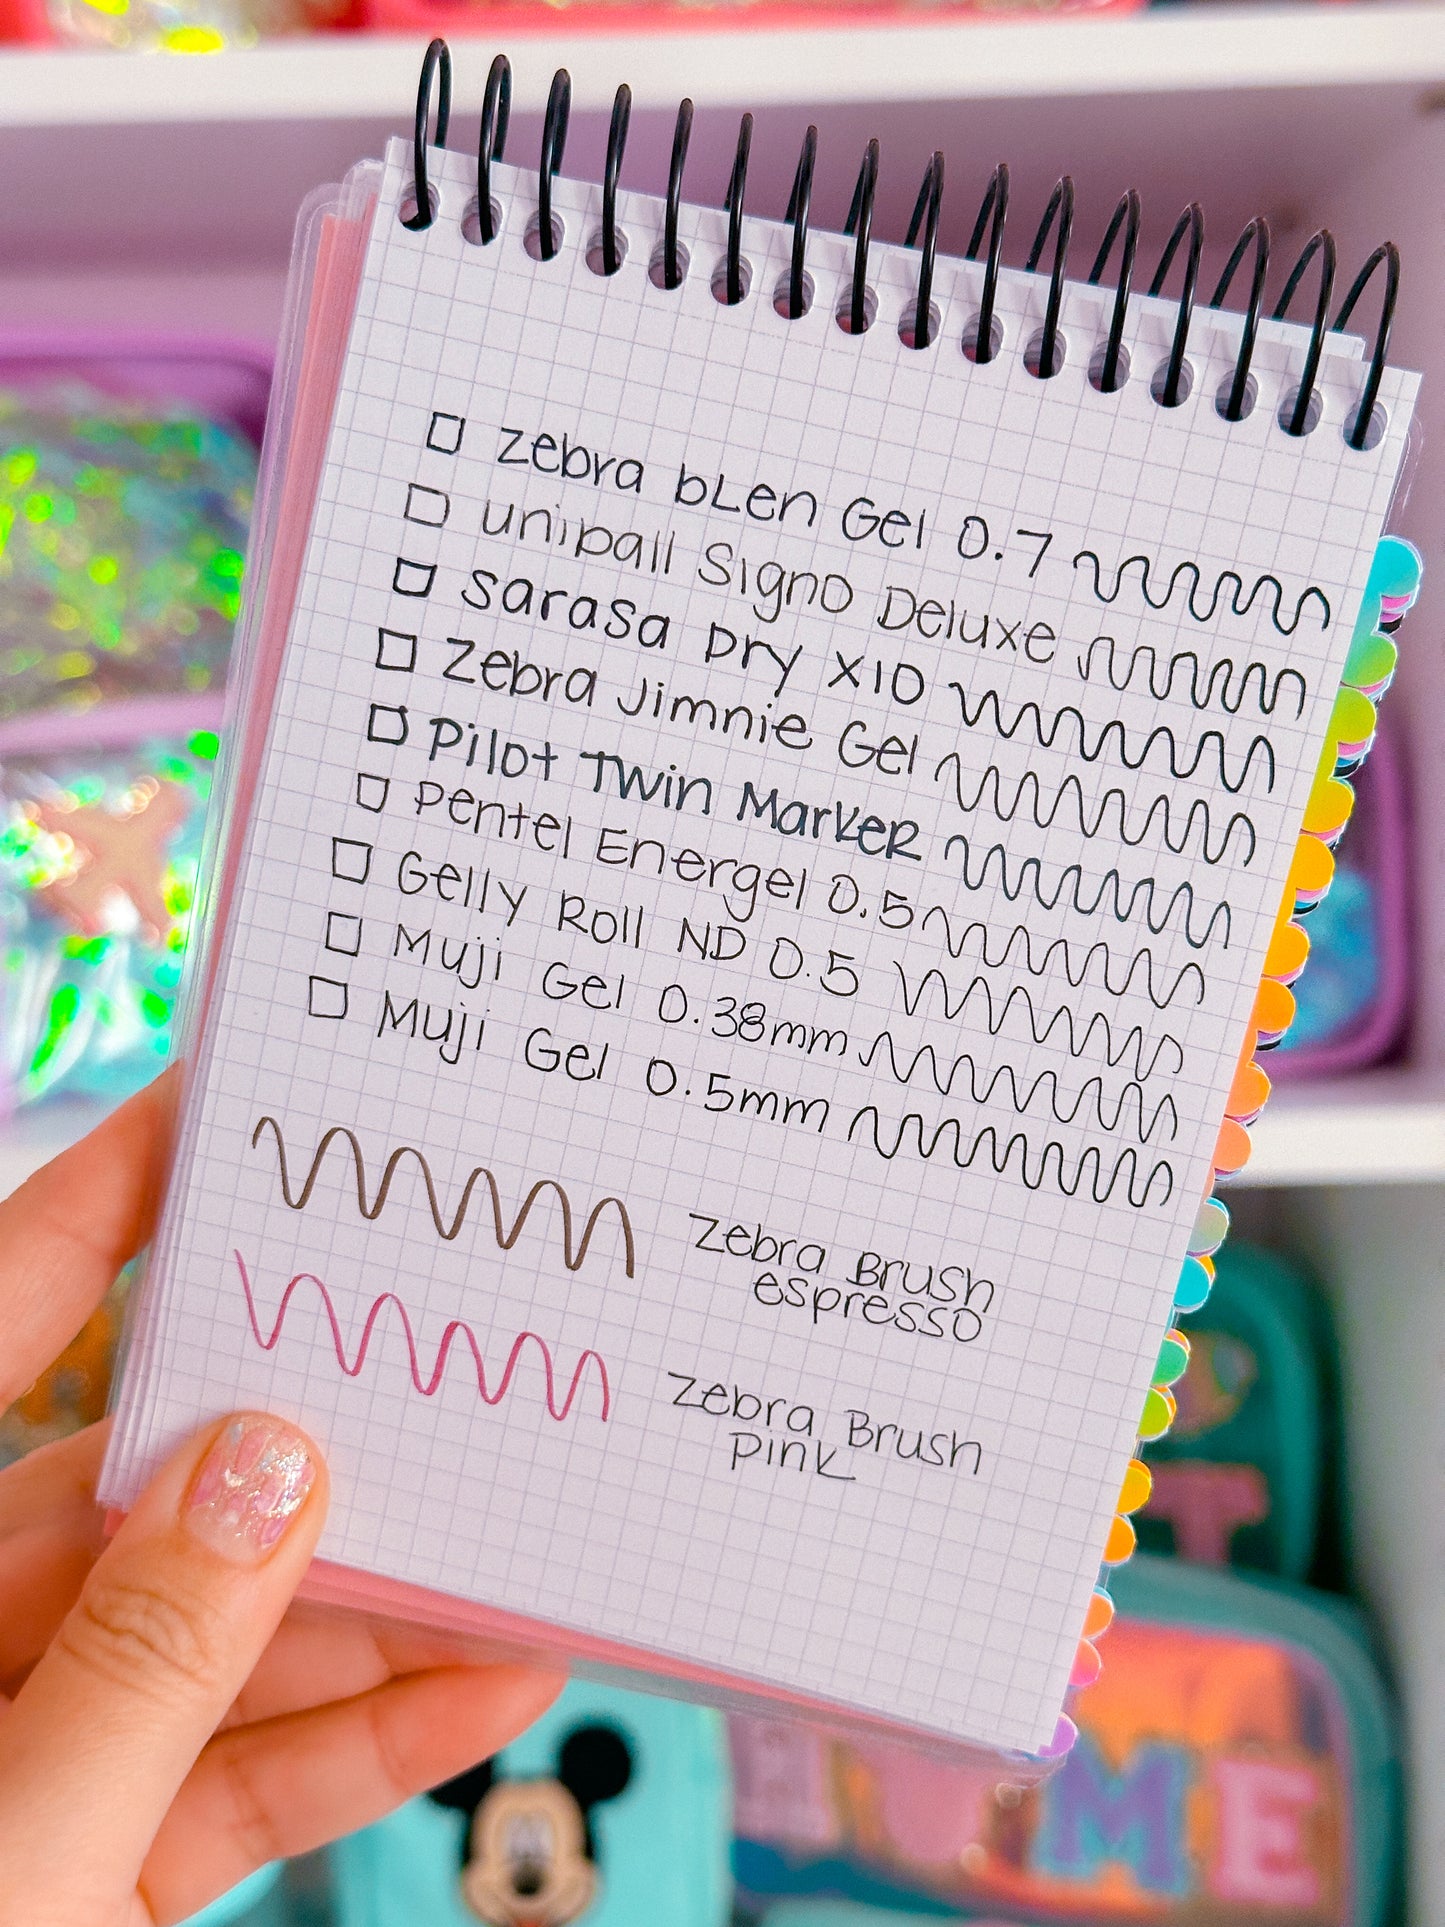 Zebra bLen Gel 0.7
uniball Signo Deluxe
Sarasa Dry X10
Zebra Jimnie Gel
Pilot Twin Marker
Pentel Energel 0.5
Gelly Roll ND 0.5
Muji Gel 0.38mm
Muji Gel 0.5mm
Zebra Brush
espresso
Zebra Brush
Pink